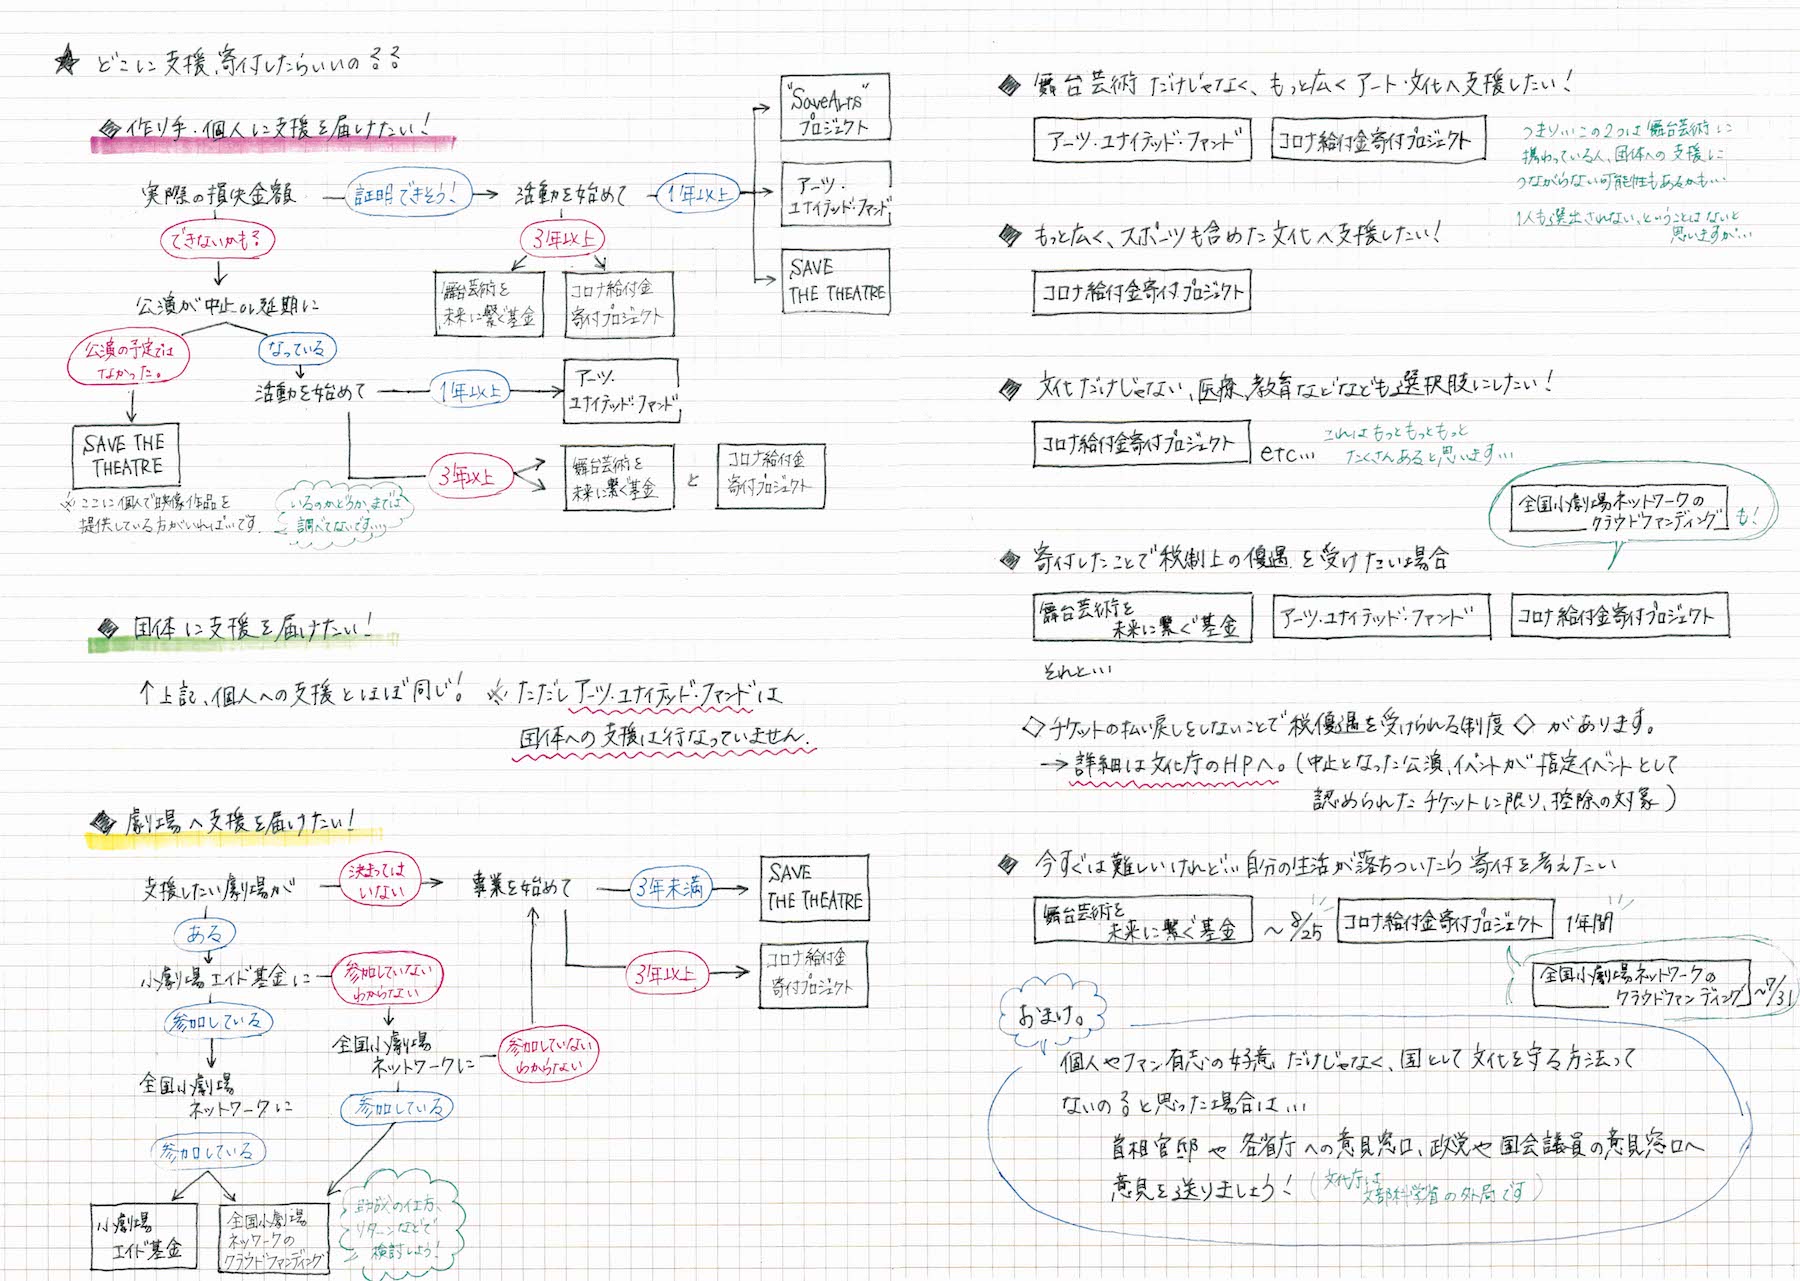 ★ どこに支援、寄付したらいいの??
◆作り手・個人に支援を届けたい!
実際の損失金額
証明できそう!
活動を始めて
1年以上
"SaveArts"
プロジェクト
アーツ・
ユナイテッド・ファンド
SAVE
THE THEATRE
3年以上
舞台芸術を
未来に繋ぐ基金
コロナ給付金
寄付プロジェクト
できないかも?
公演が中止or延期に
公演の予定では
なかった。
SAVE THE
THEATRE
※ここに個人で映像作品を
提供している方がいれば…です.
いるのかどうか、までは
調べてないです…
なっている
活動を始めて
1年以上
アーツ・
ユナイテッド・ファンド
3年以上
舞台芸術を
未来に繋ぐ基金
と
コロナ給付金
寄付プロジェクト
◆ 団体に支援を届けたい!
↑上記、個人への支援とほぼ同じ! ※ただしアーツ・ユナイテッド・ファンドは
団体への支援は行なっていません.
◆ 劇場へ支援を届けたい!
支援したい劇場が
決まっては
いない
事業を始めて
3年未満
SAVE
THE THEATRE
3年以上
コロナ給付金
寄付プロジェクト
ある
小劇場エイド基金に
参加していない
わからない
全国小劇場
ネットワークに
参加していない
わからない
参加している
全国小劇場
ネットワークに
参加している
参加している
小劇場
エイド基金
全国小劇場
ネッワークの
クラウドファンディング
の仕方、
リターンなどで
検討しよう!
◆ 舞台芸術だけじゃなく、もっと広くアート・文化へ支援したい!
アーツ・ユナイテッド・ファンド
コロナ給付金寄付プロジェクト
つまり…この2つは舞台芸術に
携わっている人、団体への支援に
つながらない可能性もあるかも…
1人も選出されない、ということはないと
思いますが…
◆ もっと広く、スポーツも含めた文化へ支援したい!
コロナ給付金寄付プロジェクト
◆ 文化だけじゃない、医療、教育などなども選択肢にしたい!
コロナ給付金寄付プロジェクト
etc…
これはもっともっともっと
たくさんあると思います…
全国小劇場ネットワークの
クラウドファンディング
も!
◆ 寄付したことで税制上の優遇を受けたい場合
舞台芸術を
未来に繋ぐ基金
アーツ・ユナイテッド・ファンド
コロナ給付金寄付プロジェクト
それと…
◇チケットの払い戻しをしないことで税優遇を受けられる制度◇があります。
→詳細は文化庁のHPへ。(中止となった公演、イベントが指定イベントとして
認められたチケットに限り、控除の対象)
◆ 今すぐは難しいけれど…自分の生活が落ちついたら寄付を考えたい
舞台芸術を
未来に繋ぐ基金
~8/25
コロナ給付金寄付プロジェクト
1年間
全国小劇場ネットワークの
クラウドファンディング
~7/31
おまけ。
個人やファン有志の好意だけじゃなく、国として文化を守る方法って
ないの?と思った場合は…
首相官邸や各省庁への意見窓口、政党や国会議員の意見窓口へ
意見を送りましょう!
(文化庁は
文部科学省の外局です)